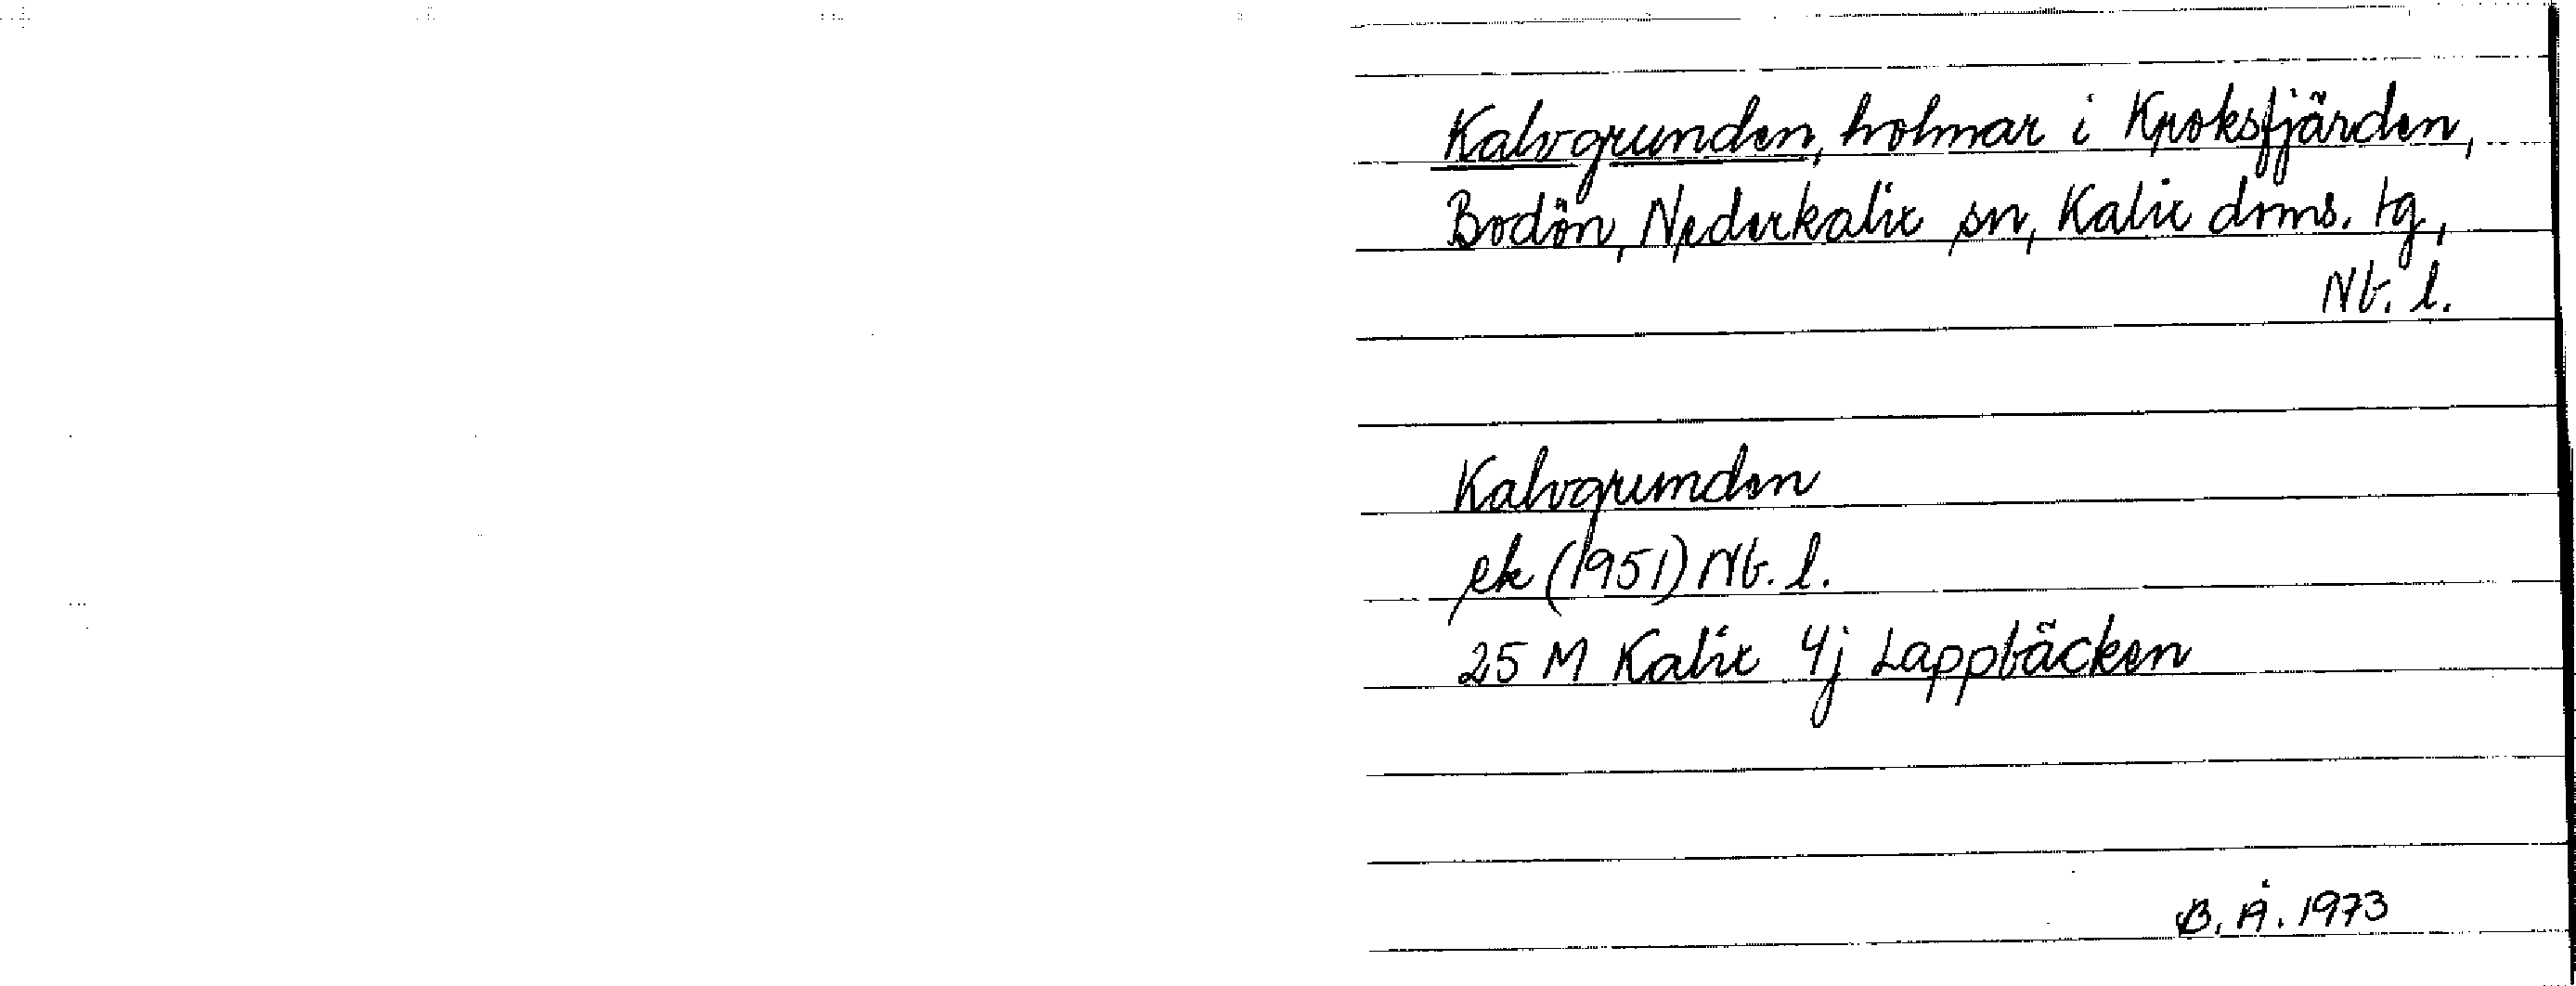 Kalvgrunden, holmar i Kroksfjärden,
Bodön, Nederkalix sn, Kalix doms. tg,
Nb. l.
Kalvgrunden
ek (1951) Nb. l.
25 M Kalix 4j Lappbäcken
B. Å. 1973